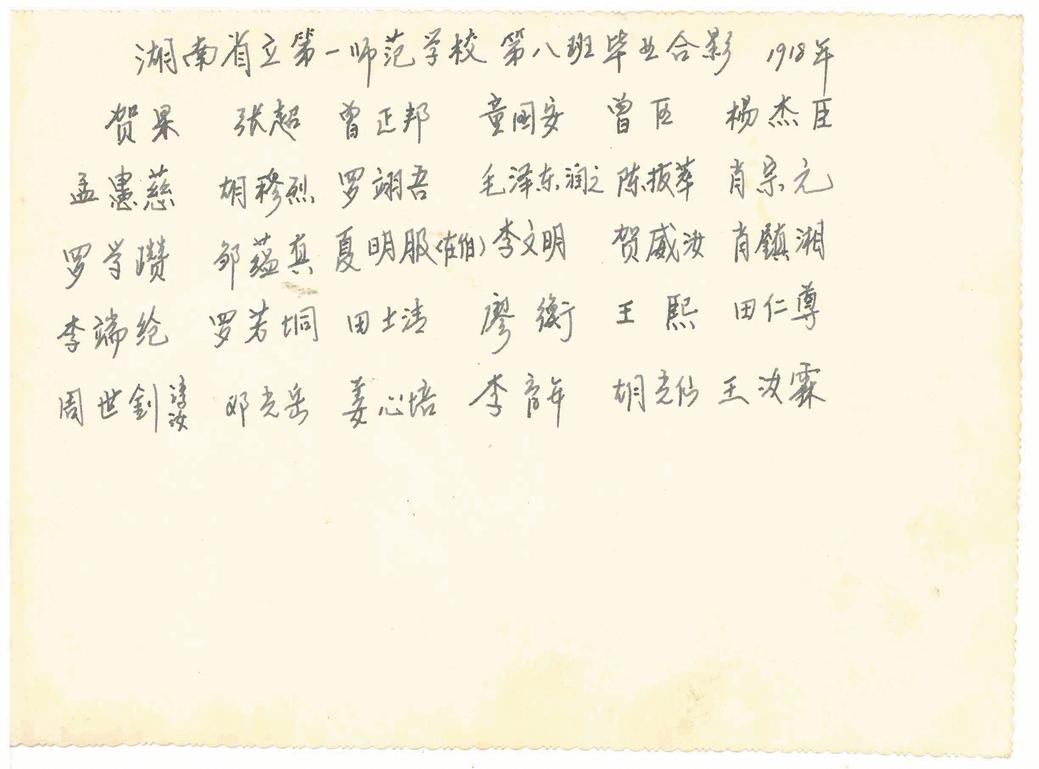 湖南省立第一师范学校第八班毕业合影 1918年
贺果 张超 曾正邦 童国安 曾臣 杨杰臣
孟惠慈 胡穆烈 罗翊吾 毛泽东润之 陈拔萃 肖宗元
罗学瓒 邹蕴真 夏明服(佐伯) 李文明 贺威汝 肖镇湘
李端纶 罗芳垌 田士清 廖衡 王熙 田仁尊
周世釗淳汝 邓克岳 姜心培 李育年 胡克仙 王汝霖